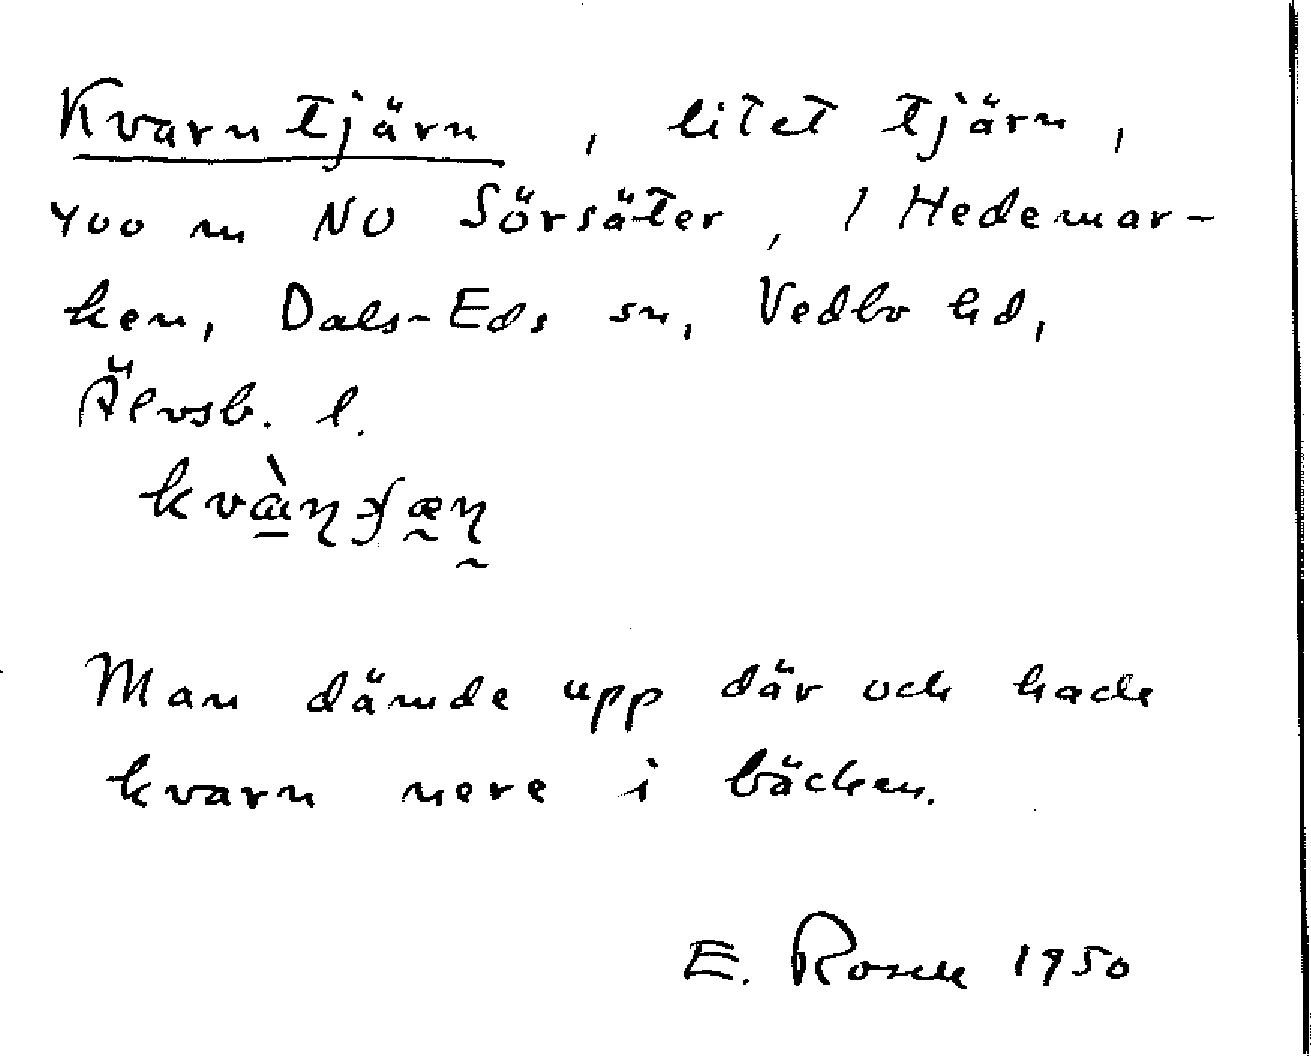 Kvarntjärn, litet tjärn,
400 m NO Sörsäter, 1 Hedemar-
ken, Dals-Eds sn, Vedbo hd,
Älvsb. l.
Man dämde upp där och hade
kvarn nere i bäcken.
E. Rosell 1950